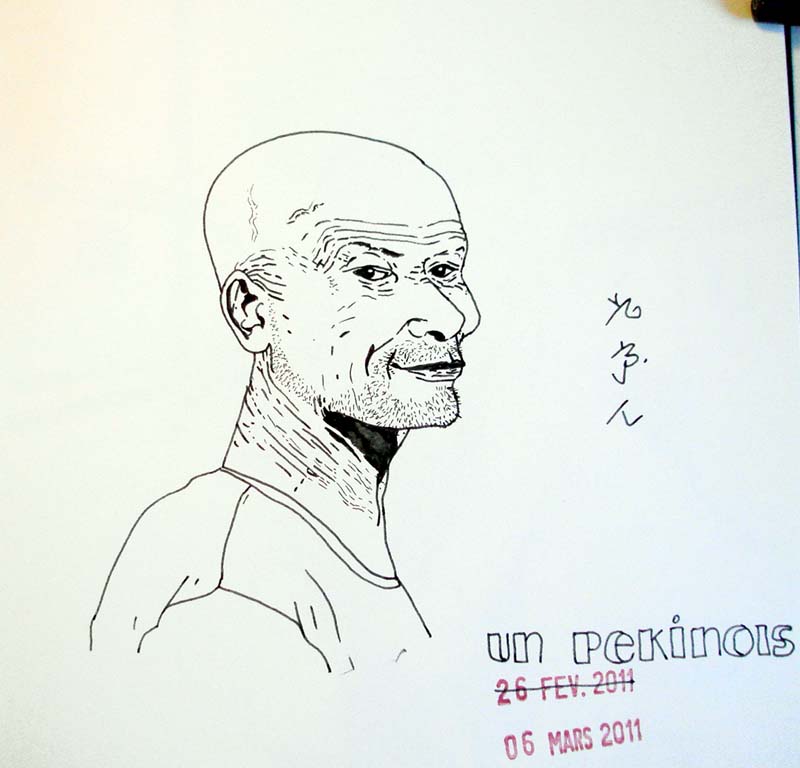 北
京
人
un PeKinois
26 FEV. 2011
06 MARS 2011